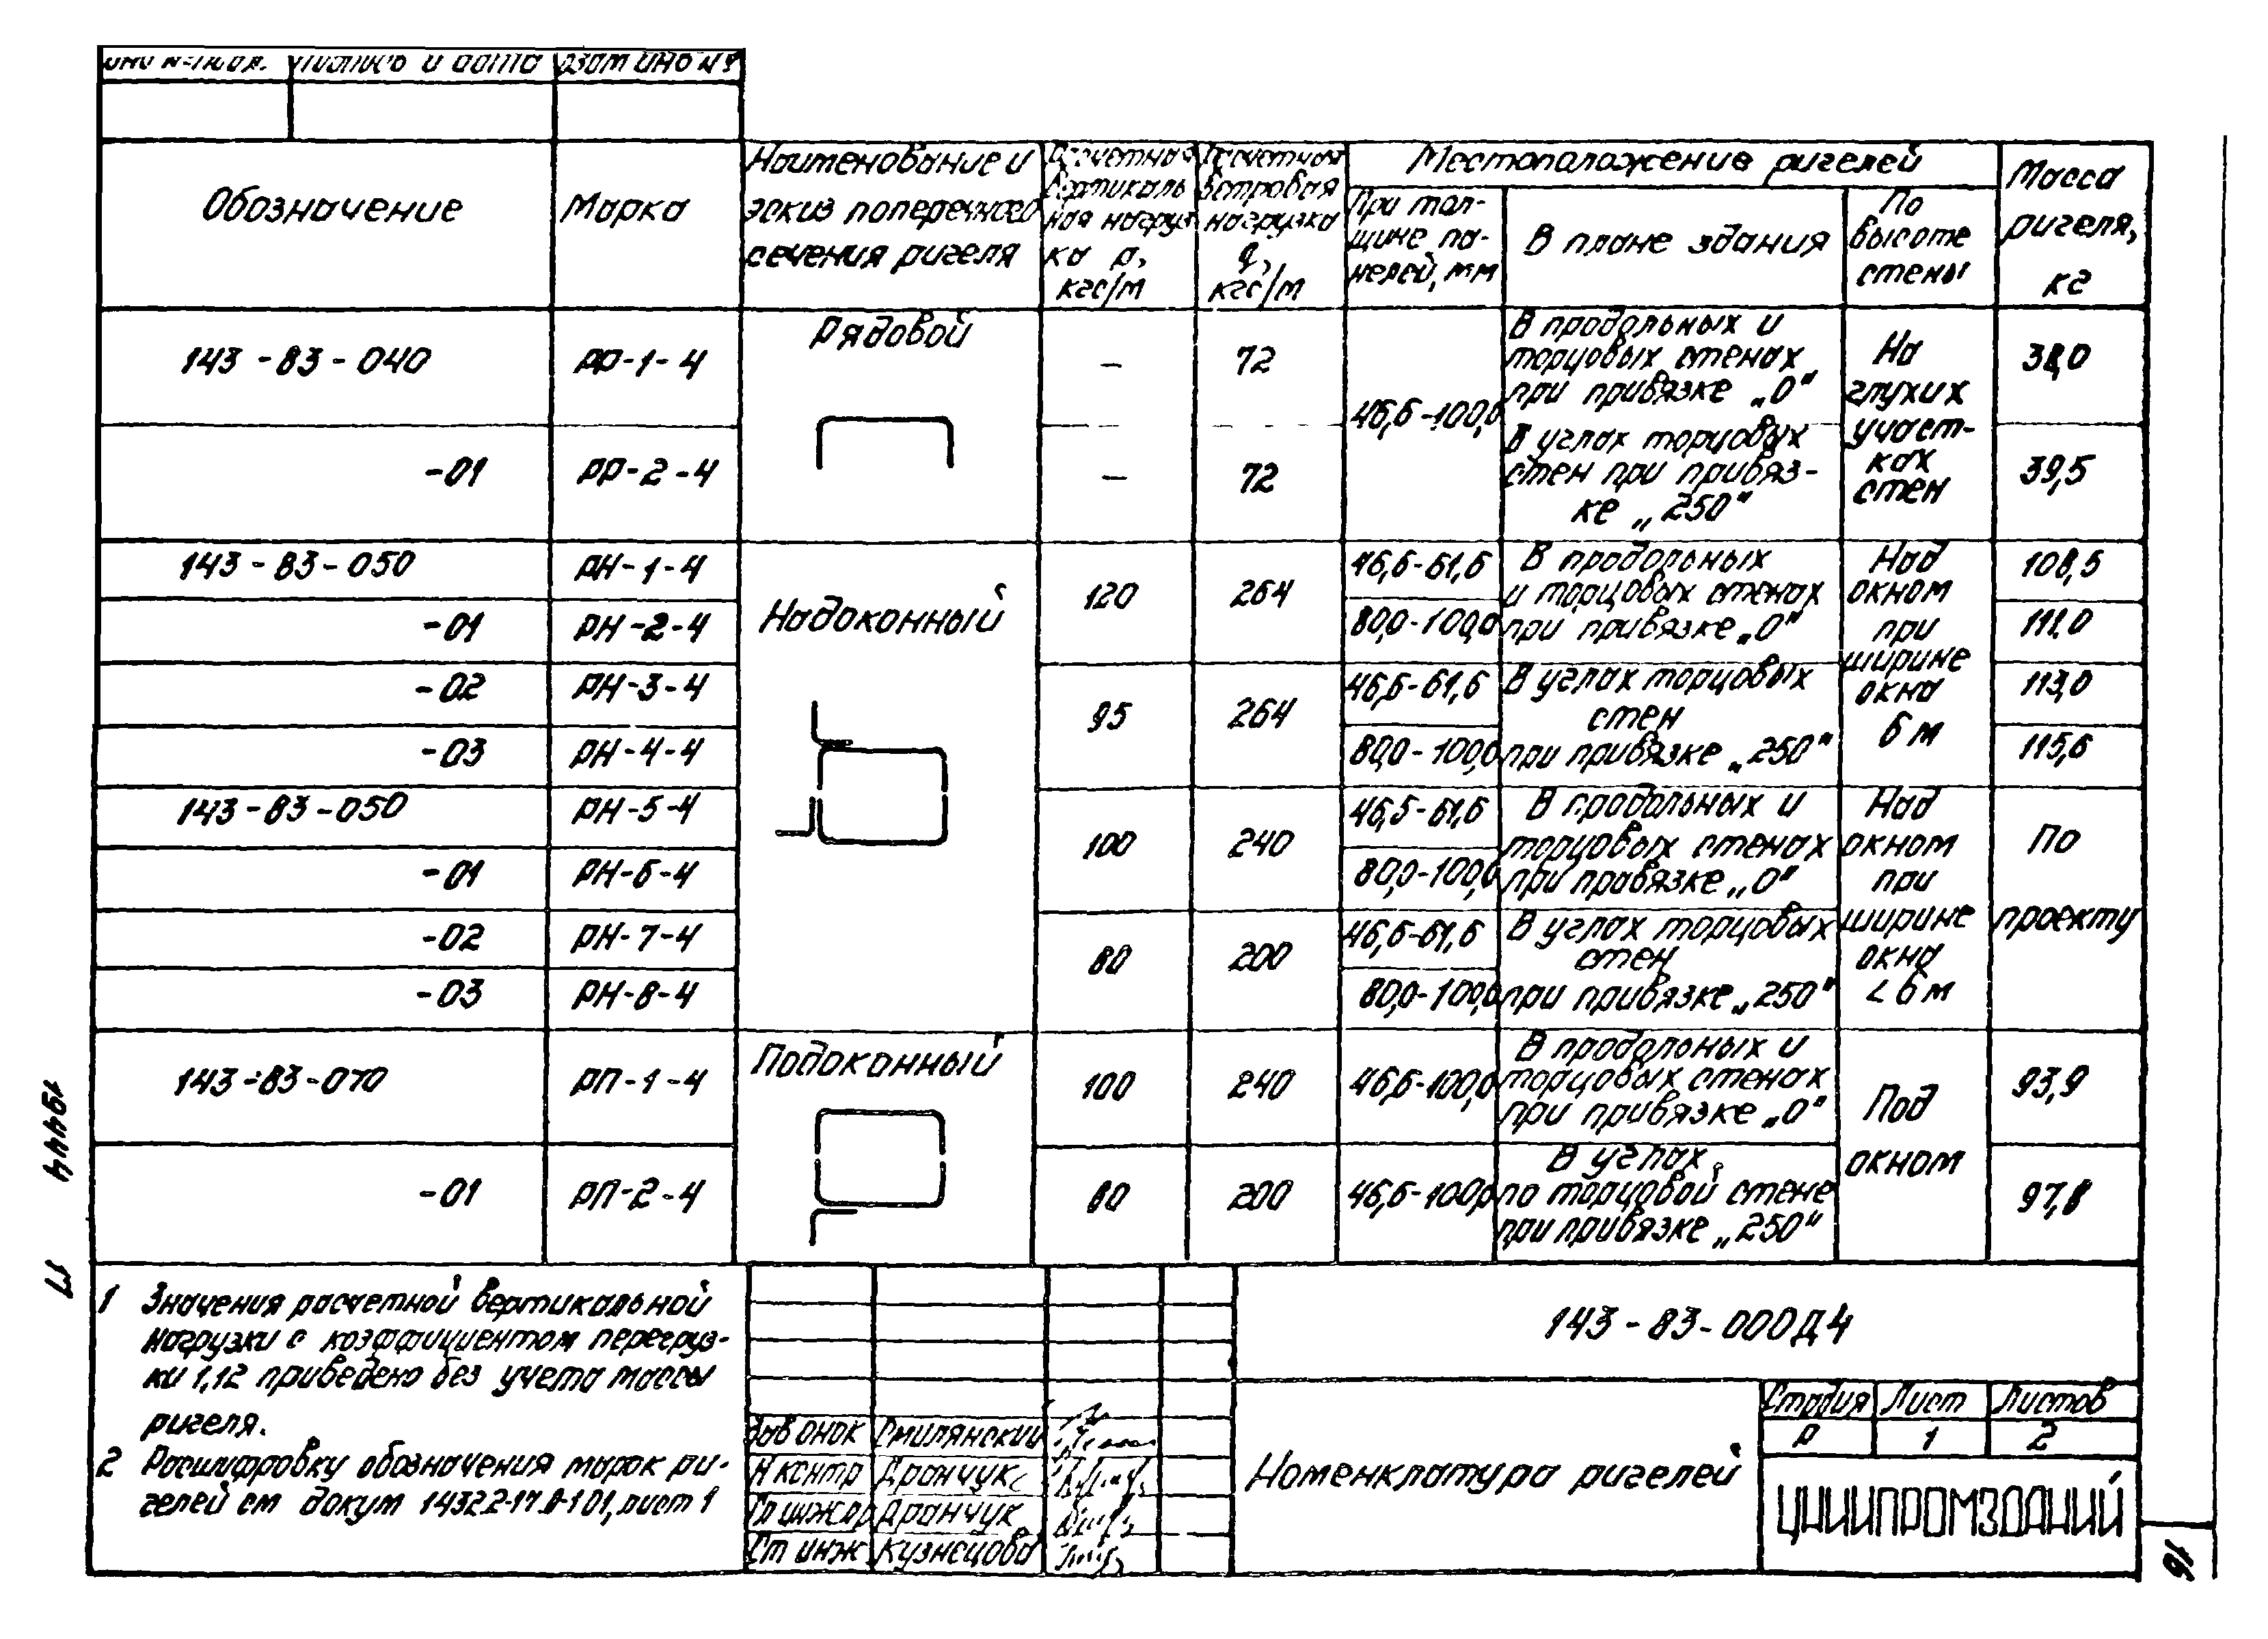 Подпись и дата Взам инв №
Обозначение
Марка
Наименование и
эскиз поперечного
сечения ригеля
Расчетная
вертикаль
ная нагруз
ка р,
кгс/м
Расчетная
ветровая
нагрузка
q,
кгс/м
Местоположение ригелей
При тол-
щине па-
нелей, мм
В плане здания
По
высоте
стены
Масса
ригеля,
кг
143-83-040 РР-1-4
Рядовой
— 72
46,6-100,0
В продольных и
торцовых стенах
при привязке „0"
На
глухих
участ-
ках
стен
38,0
-01 РР-2-4 — 72
В углах торцовых
стен при привяз-
ке „250"
39,5
143-83-050 РН-1-4
Надоконный
120 264
46,6-61,6
В продольных
и торцовых стенах
при привязке „0"
Над
окном
при
ширине
окна
6 м
108,5
-01 РН-2-4 80,0-100,0 111,0
-02 РН-3-4 95 264 46,6-61,6
В углах торцовых
стен
при привязке „250"
113,0
-03 РН-4-4 80,0-100,0 115,6
143-83-050 РН-5-4 100 240 46,5-61,6
В продольных и
торцовых стенах
при правязке „0"
Над
окном
при
ширине
окна
< 6 м
По
проекту
-01 РН-6-4 80,0-100,0
-02 РН-7-4 80 200 46,6-61,6
В углах торцовых
стен
при привязке „250"
-03 РН-8-4 80,0-100,0
143-83-070 РП-1-4
Подоконный
100 240 46,6-100,0
В продольных и
торцовых стенах
при привязке „0"
Под
окном
93,9
-01 РП-2-4 80 200 46,6-100,0
В углах
по торцовой стене
при привязке „250"
97,8
1 Значения расчетной вертикальной
нагрузки с коэффициентом перегруз-
ки 1,12 приведено без учета массы
ригеля.
2 Расшифровку обозначения марок ри-
гелей см докум 1432.2-17.0-1 01, лист 1
Зав Смилянский
Н контр Дранчук
Гл инж пр Дранчук
Ст инж Кузнецова
143-83-000Д4
Номенклатура ригелей
Стадия Лист Листов
Р 1 2
ЦНИИПРОМЗДАНИЙ
19444 17
16